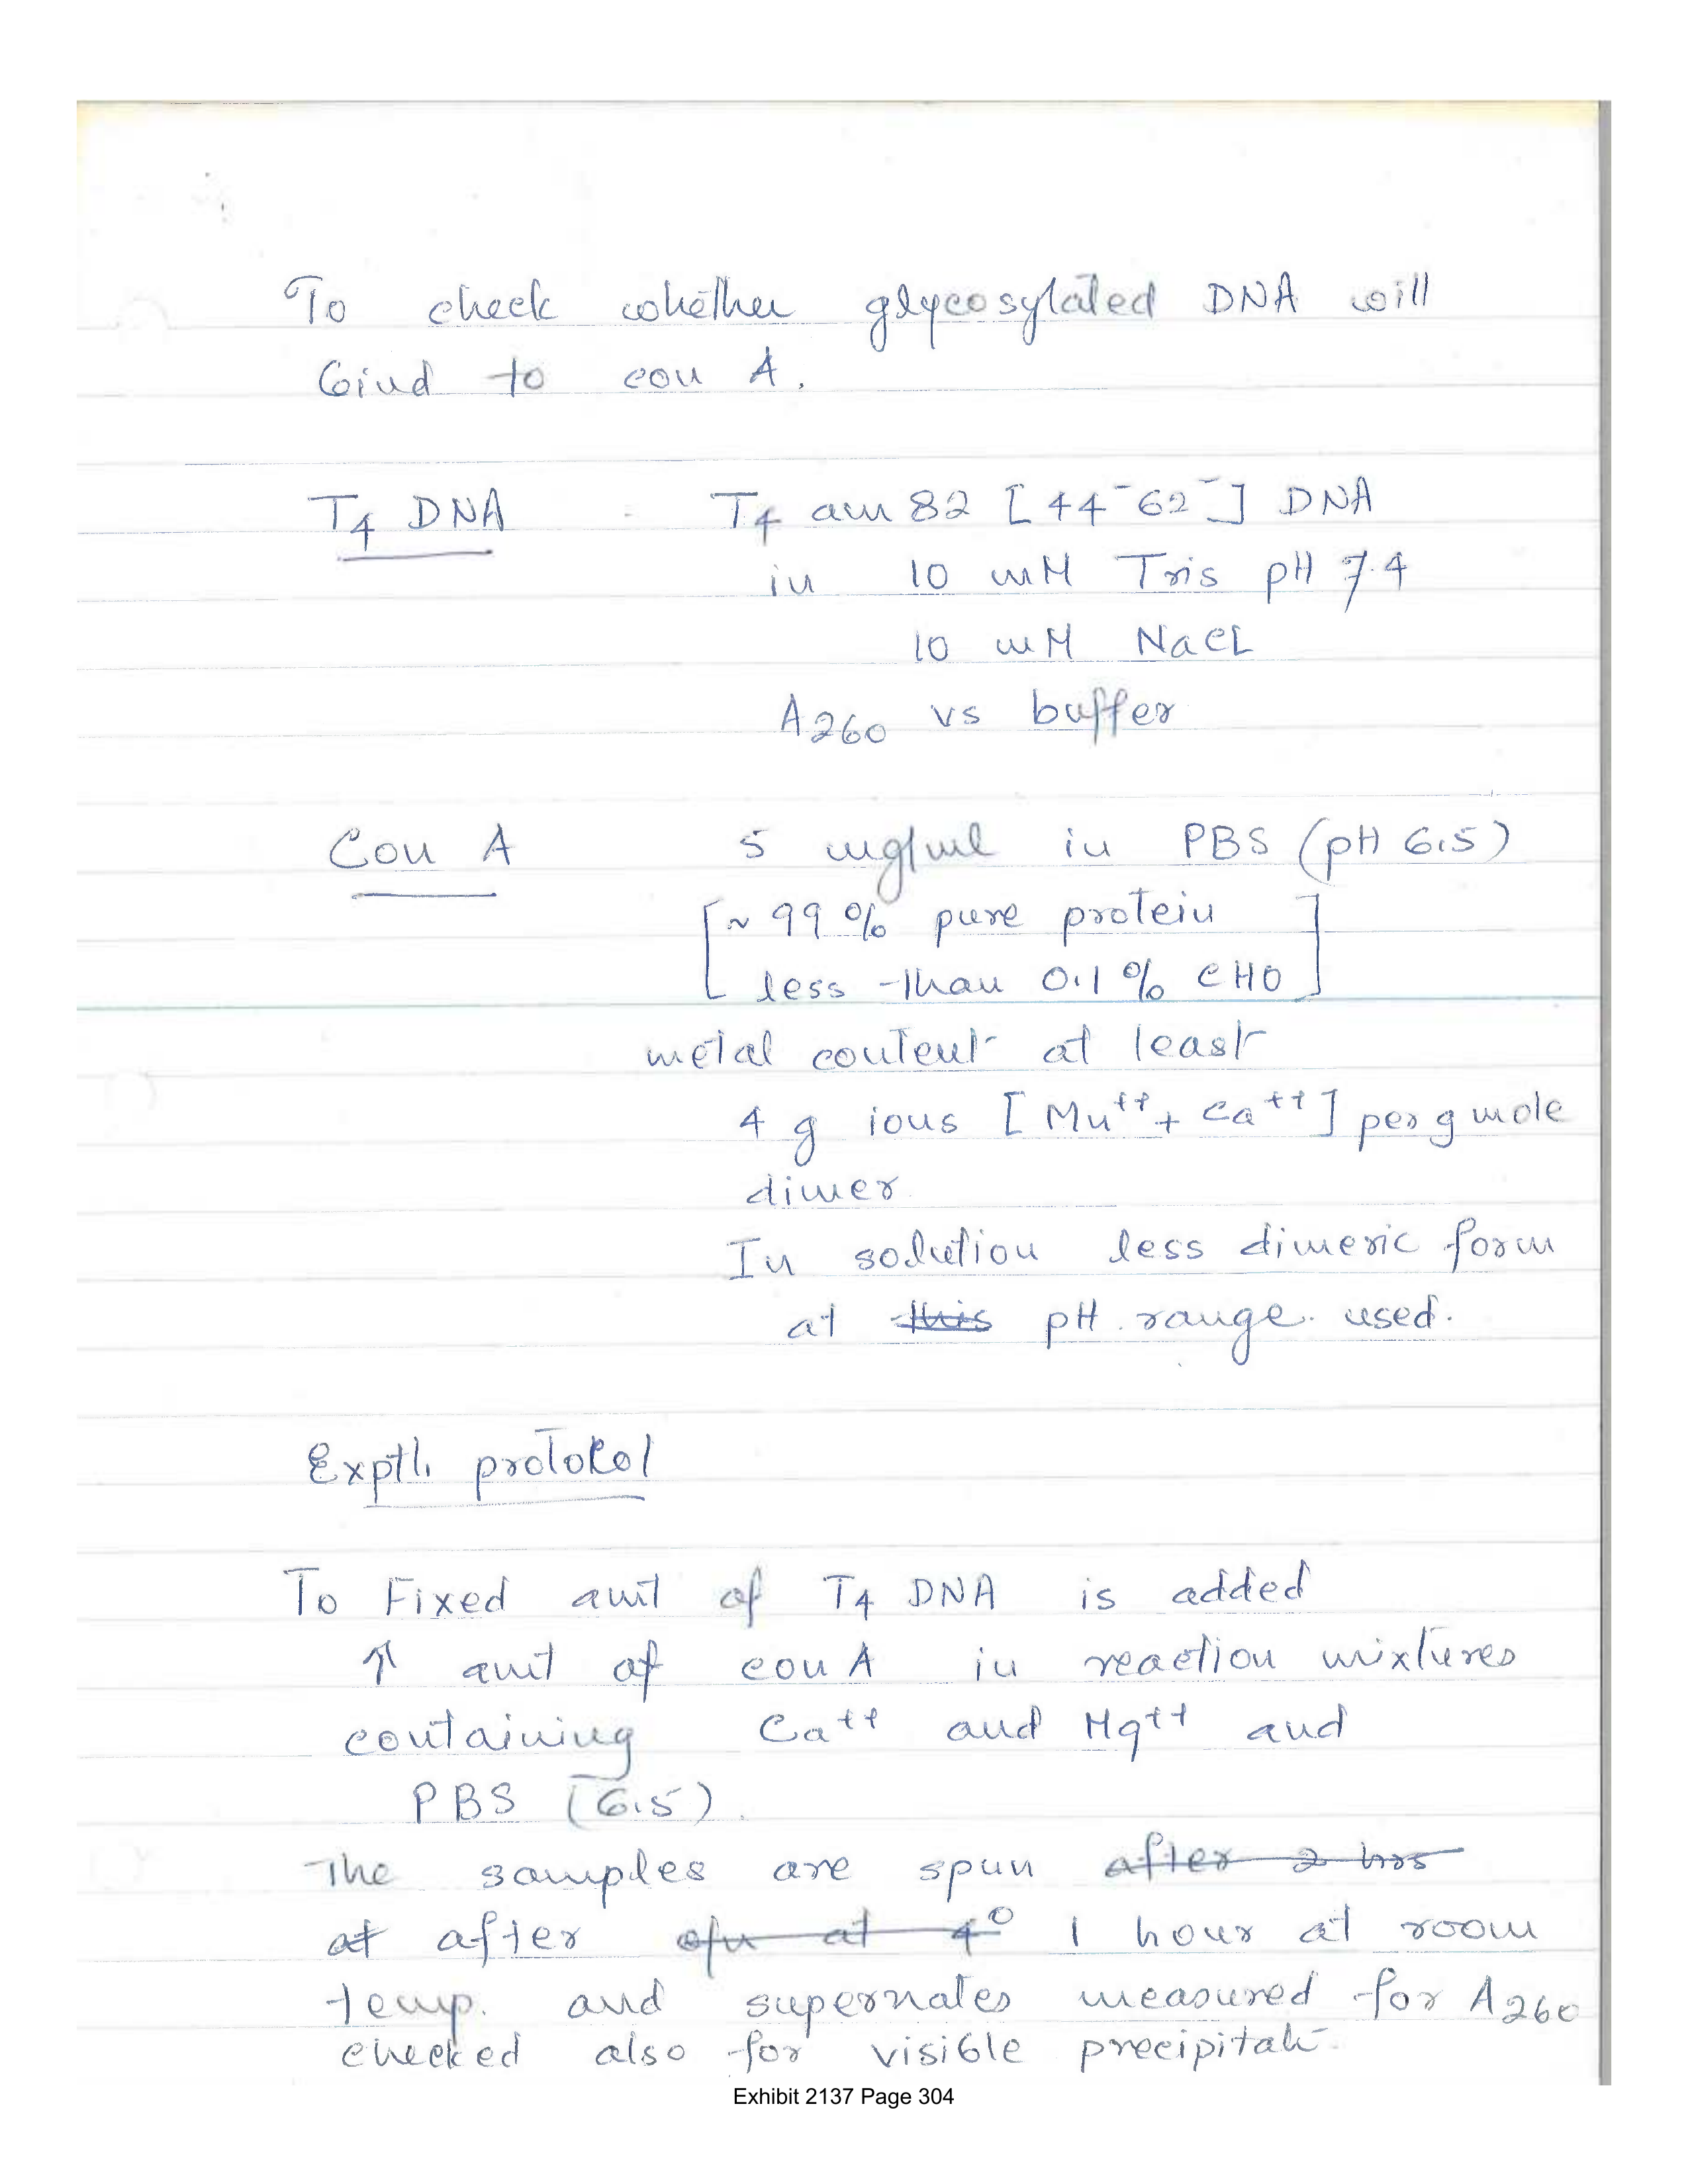 To check whether glycosylated DNA will
bind to con A.
T4 DNA - T4 am 82 [44⁻62⁻] DNA
in 10 mM Tris pH 7.4
10 mM NaCl
A260 vs buffer
Con A 5 mg/ml in PBS (pH 6.5)
[~ 99 % pure protein
less than 0.1 % CHO]
metal content at least
4 g ions [Mn⁺⁺ + Ca⁺⁺] per g mole
dimer
In solution less dimeric form
at this pH range used.
Exptl. protokol
To Fixed amt of T4 DNA is added
↑ amt of con A in reaction mixtures
containing Ca⁺⁺ and Mg⁺⁺ and
PBS (6.5).
The samples are spun after 2 hrs
at after at 4° 1 hour at room
temp. and supernates measured for A260
checked also for visible precipitate
Exhibit 2137 Page 304